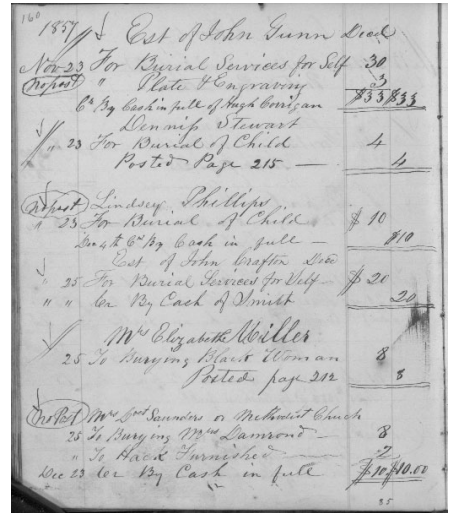 160
1857 Est of John Gunn Decd
Nov 23 For Burial Services for Self 30
No post " Plate & Engraving 3
Cr By Cash in full of Hugh Corrigan $33 $33
Denniss Stewart
" 23 For Burial of Child 4
Posted Page 215 — 4
No post Lindsey Phillips
" 23 For Burial of Child $10
Dec 4th Cr By Cash in full — $10
Est of John Crafton Decd
" 25 For Burial Services for Self $20
" " Cr By Cash of Smith 20
Mrs Elizabeth Miller
25 To Burying Black Woman 8
Posted page 212 8
No Post Mrs Saunders or Methodist Church
25 To Burying Mrs Damrond — 8
" To Hack Furnished 2
Dec 23 Cr By Cash in full $10 $10.00
35